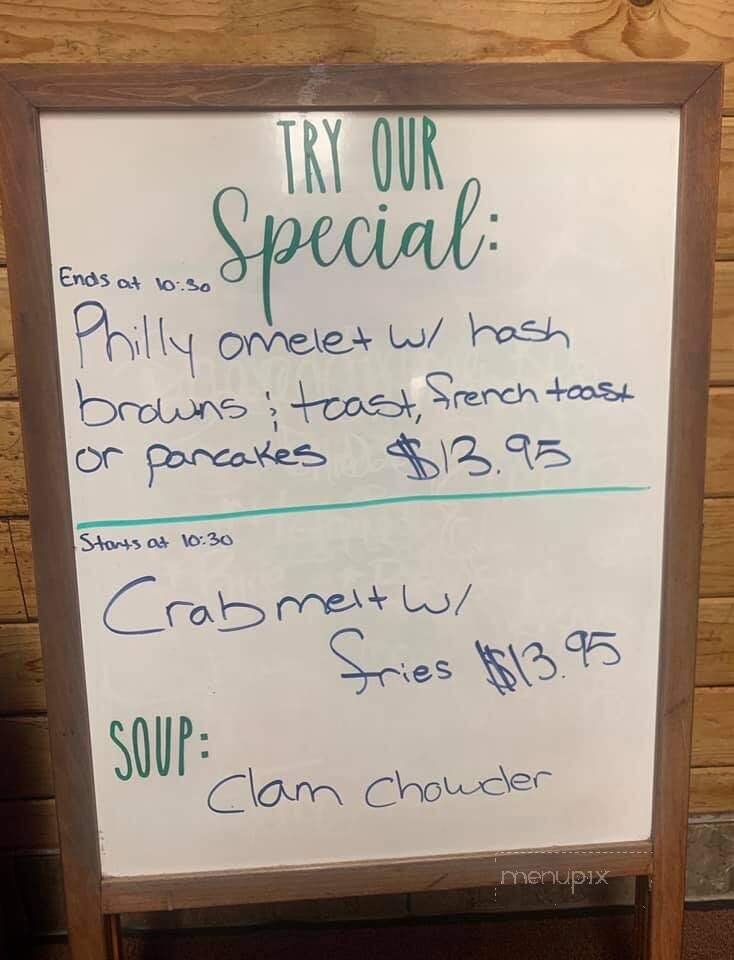 TRY OUR
Special:
Ends at 10:30
Philly omelet w/ hash
browns ; toast, french toast
or pancakes $13.95
Starts at 10:30
Crab melt w/
fries $13.95
SOUP:
Clam Chowder
menupix